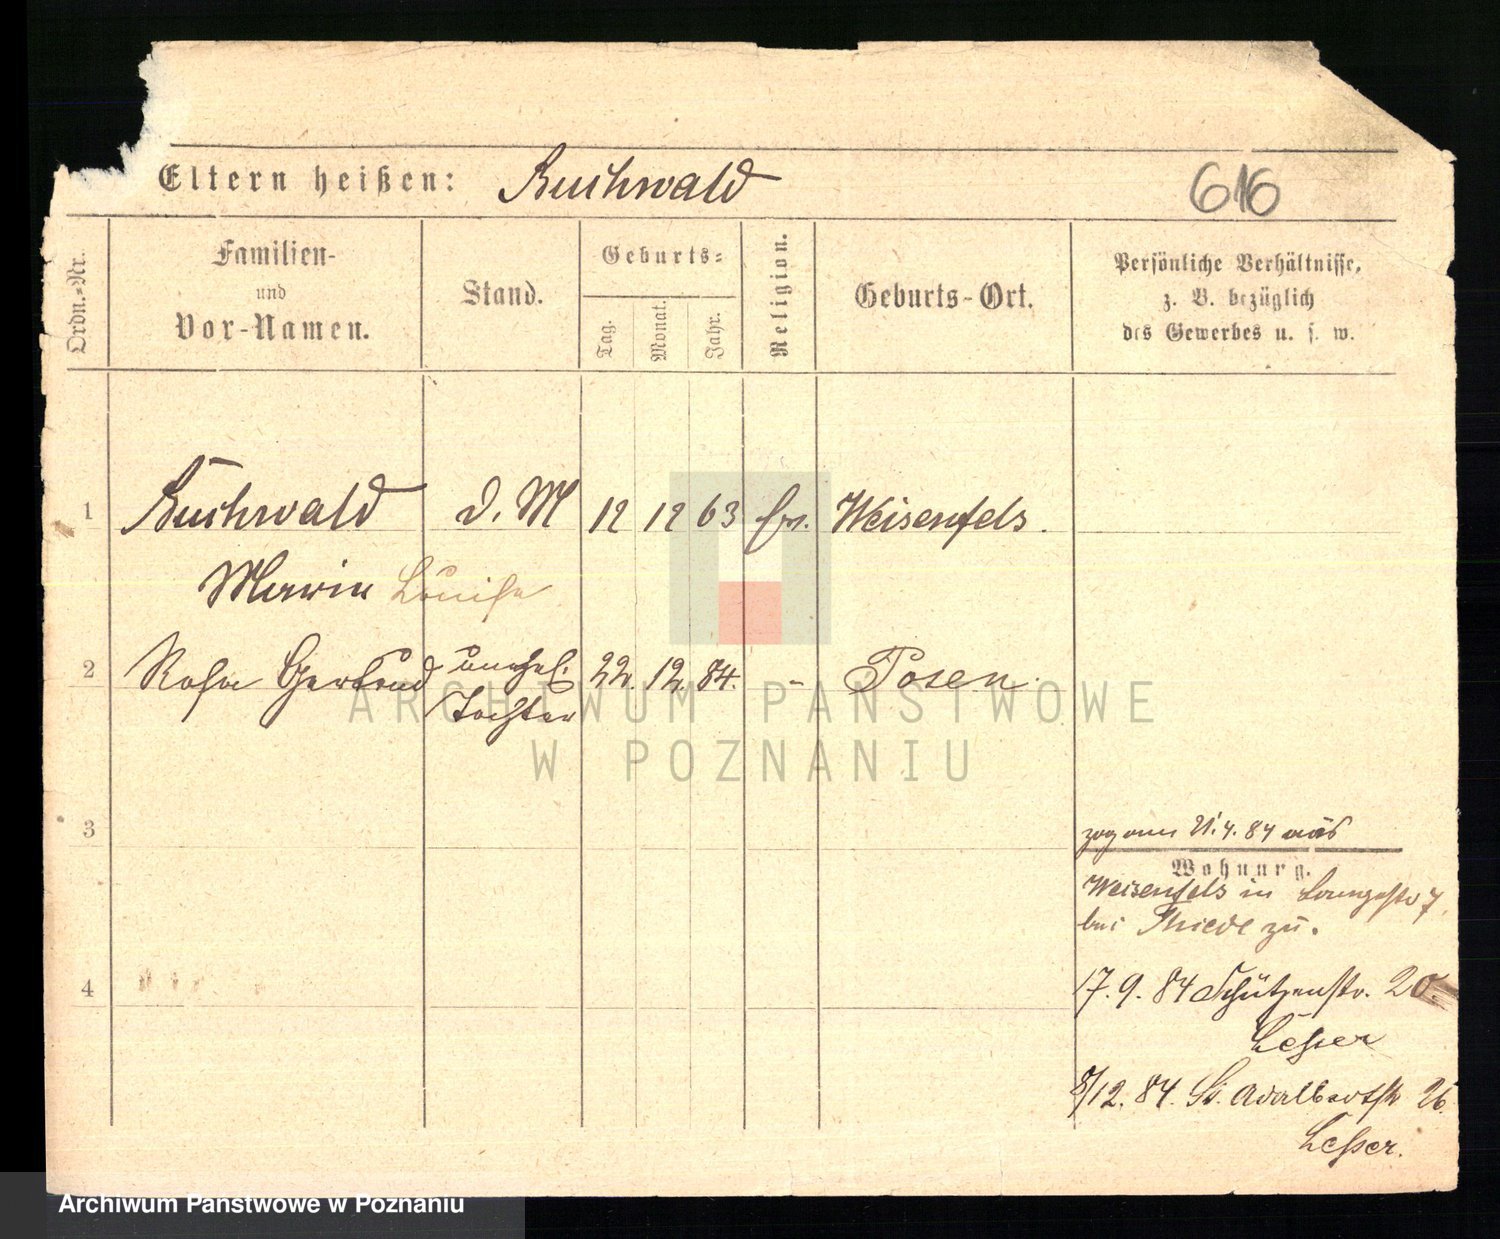 Eltern heißen: Buchwald
616
Ordn.-Nr.
Familien-
und
Vor-Namen.
Stand.
Geburts-
Tag.
Monat.
Jahr.
Religion.
Geburts-Ort.
Persönliche Verhältnisse,
z. B. bezüglich
des Gewerbes u. s. w.
1 Buchwald D. M 12 12 63 Weisenfels.
Marie Louise
2 Rosa Gertrud unehel. 22. 12. 84. - Posen.
Tochter
ARCHIWUM PAŃSTWOWE
W POZNANIU
3
zog am 21.4.84 aus
Wohnung.
Weisenfels in 7.
bei Thiede zu.
4
17. 9. 84 Schützenstr. 20.
Lesser
8/12. 84. St. Adalbertstr 26.
Lesser.
Archiwum Państwowe w Poznaniu